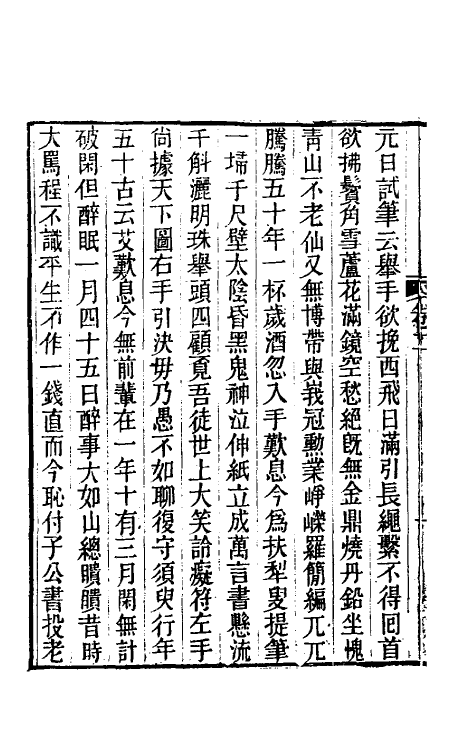 元日試筆云舉手欲挽西飛日滿引長繩繫不得回首
欲拂鬢角雪蘆花滿鏡空愁絕旣無金鼎燒丹鉛坐愧
靑山不老仙又無博帶與峩冠勲業崢嶸羅簡編兀兀
騰騰五十年一杯歲酒忽入手歎息今爲扶犁叟提筆
一埽千尺壁太陰昏黑鬼神泣伸紙立成萬言書懸流
千斛灑明珠舉頭四顧覔吾徒世上大笑詅癡符左手
尙據天下圖右手引決毋乃愚不如聊復守須臾行年
五十古云艾歎息今無前輩在一年十有三月閑無計
破閑但醉眠一月四十五日醉事大如山總瞶瞶昔時
大罵程不識平生不作一錢直而今恥付子公書投老